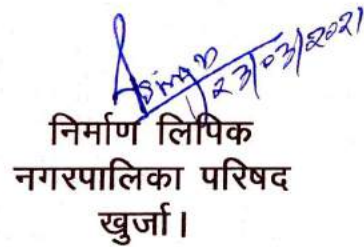 Asingh
23/03/2021
निर्माण लिपिक
नगरपालिका परिषद
खुर्जा।